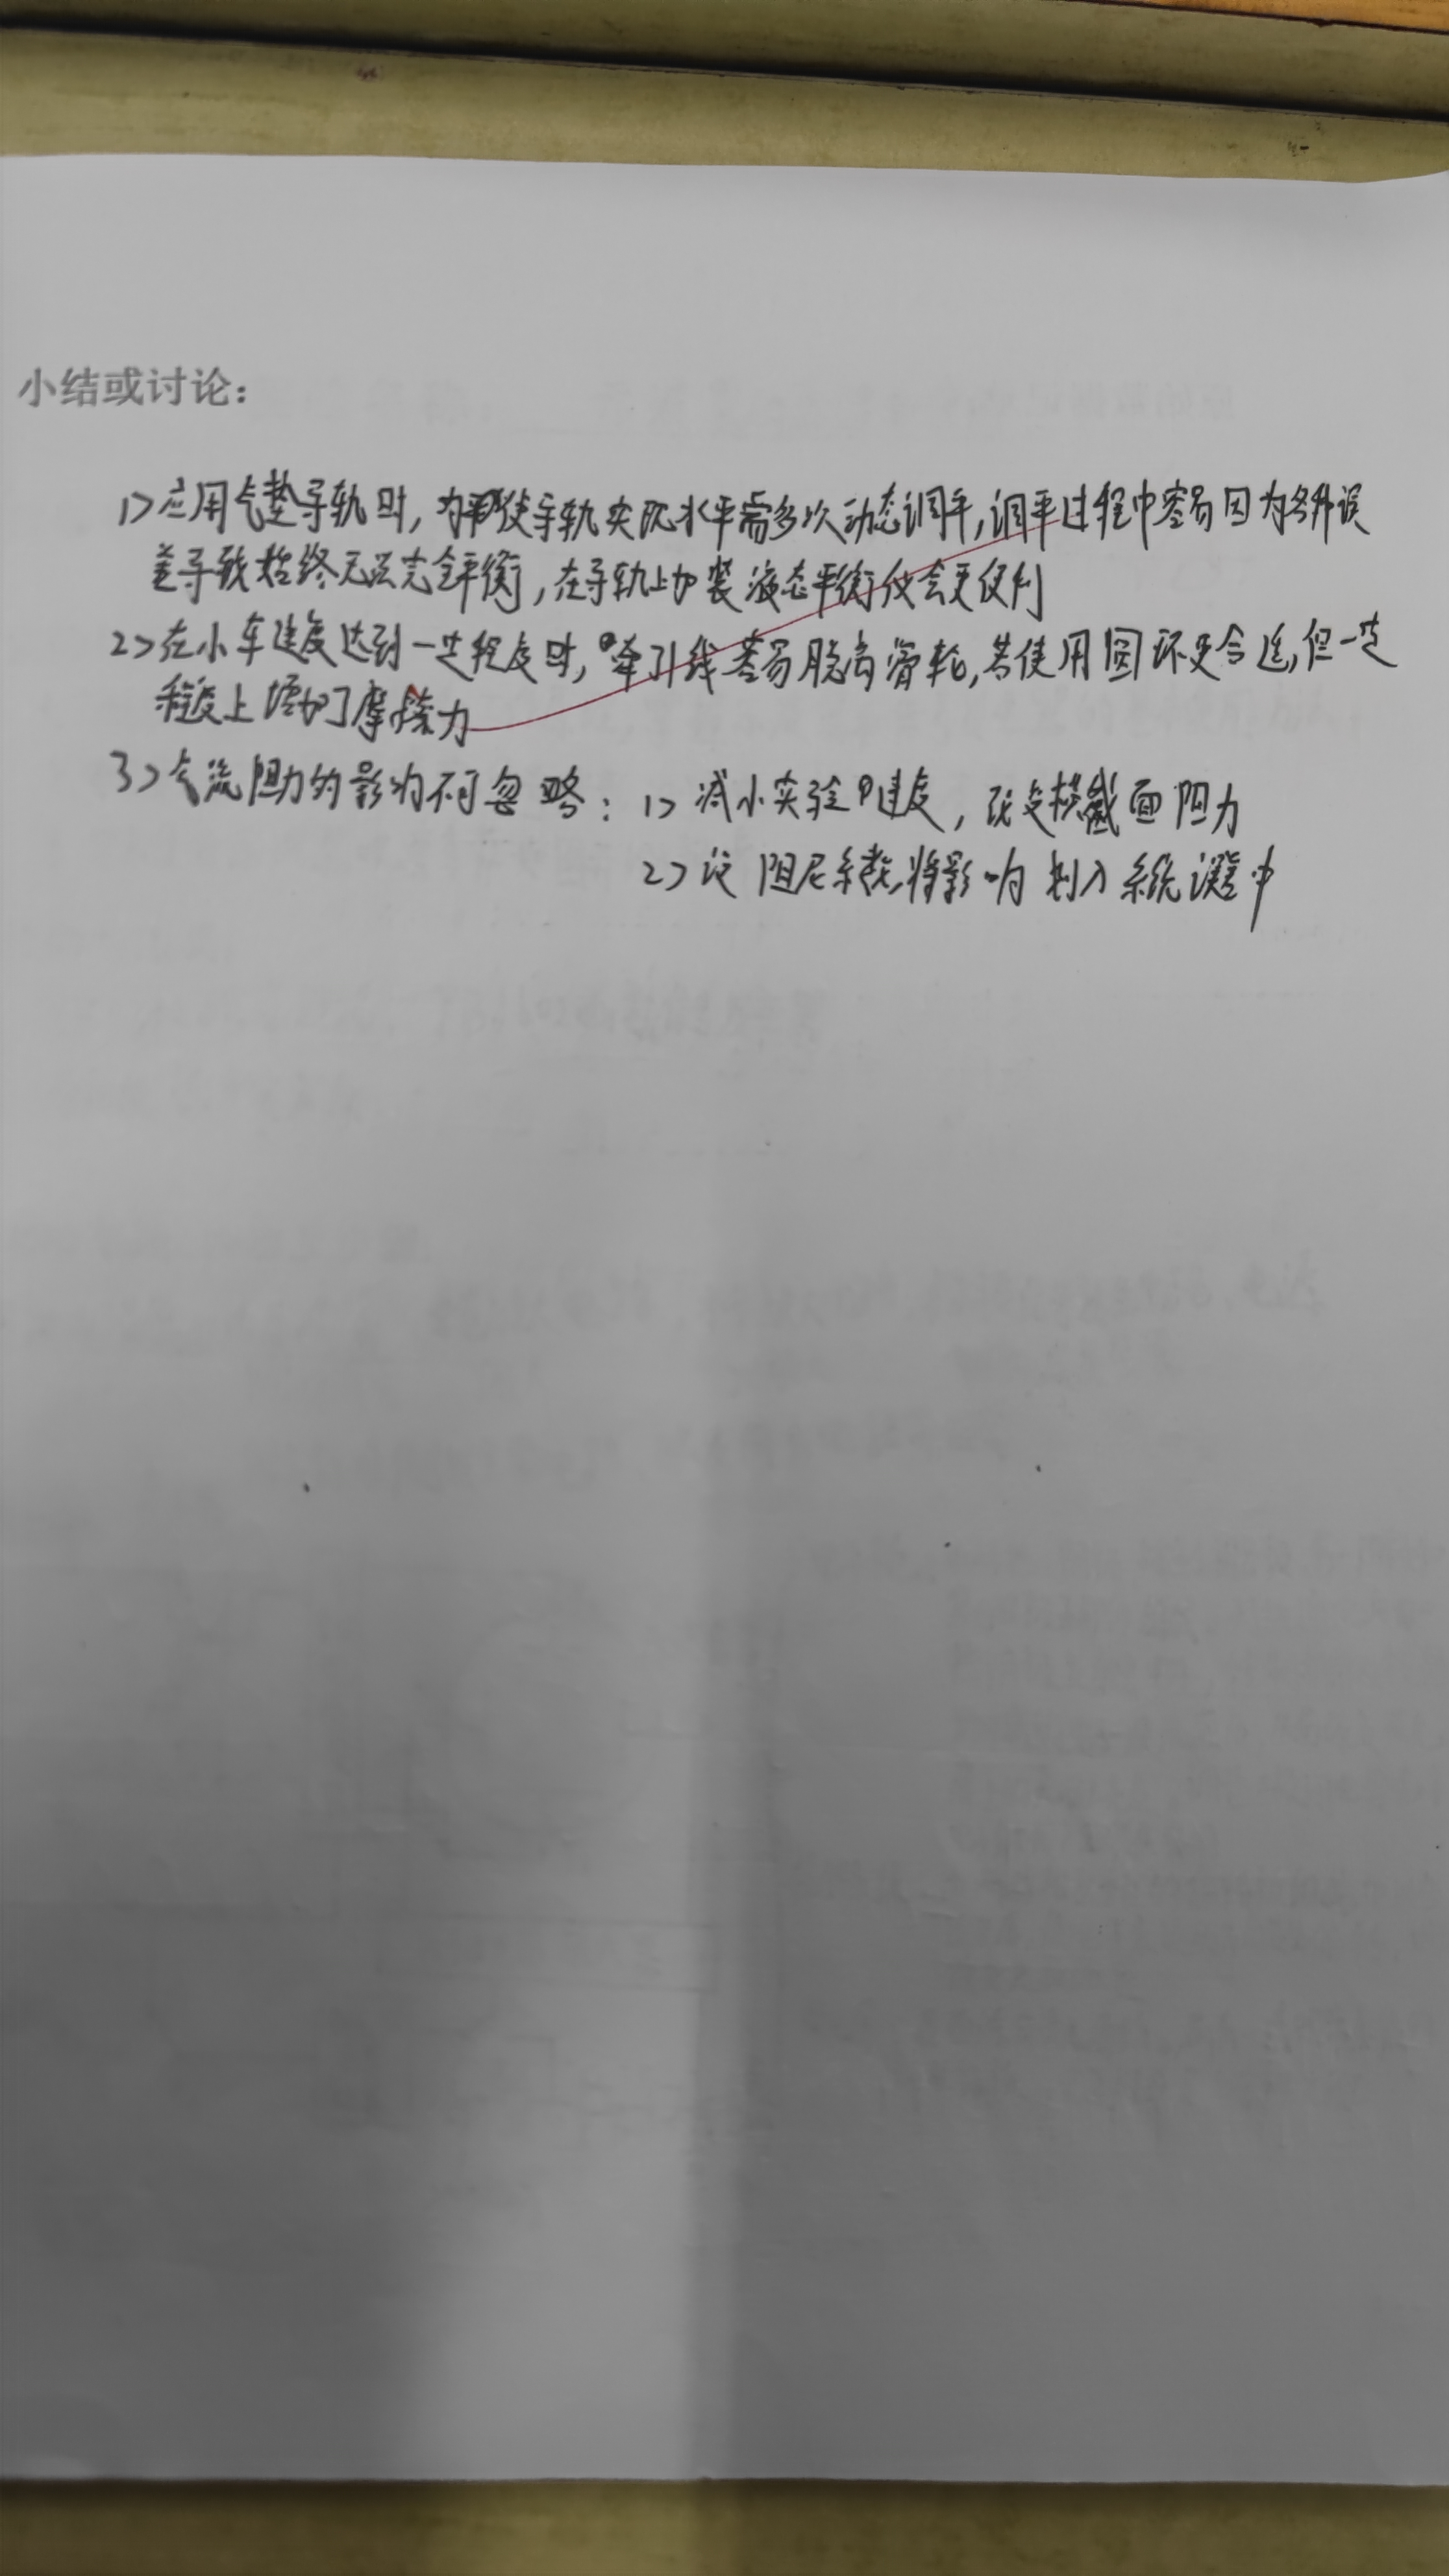 小结或讨论：
1> 应用气垫导轨时，为使导轨实现水平需多次动态调平，调平过程中容易因为各种误
差导致始终无法完全平衡，在导轨上加装液态平衡仪会更便利
2> 在小车速度达到一定程度时，牵引线容易脱离滑轮，若使用圆环更合适，但一定
程度上增加了摩擦力
3> 气流阻力的影响不可忽略：1> 减小实验速度，改变横截面阻力
2> 设阻尼系数，将影响划入系统误差中